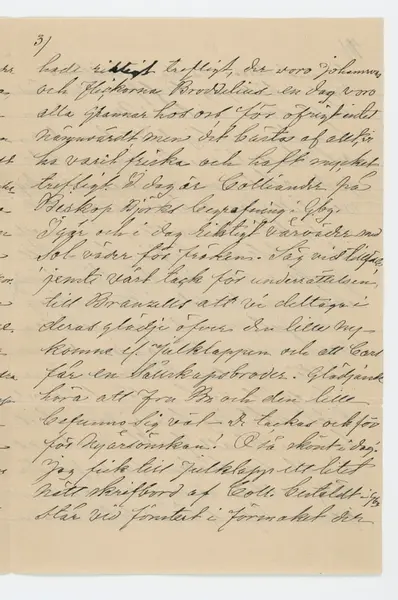 3/
hade riktigt trefligt, der voro Johansson
och flickorna Brodelius en dag voro
alla grannar hos oss för öfrigt intet
nämnvärdt men det bästa af allt, vi
ha varit friska och haft mycket
trefligt. I dag är Colliander på
Biskop Björks begrafning i Gbg.
Igår och i dag riktigt vårväder m
Sol väder för fröken. Säg vid tillfälle,
jemte vårt tack för underrättelsen,
till Branzells att vi deltaga i
deras glädje öfver den lille ny-
komne i/ Julklappen och att Carl
får en Sällskapsbroder. Glädjande
höra att fru B och den lille
befunno sig väl - De tackas ock för
för Nyårsönskan! O så skönt i dag!
Jag fick till Julklapp ett litet
nätt skrifbord af Coll. bestäldt i Gbg
står vid fönstret i förmaket der